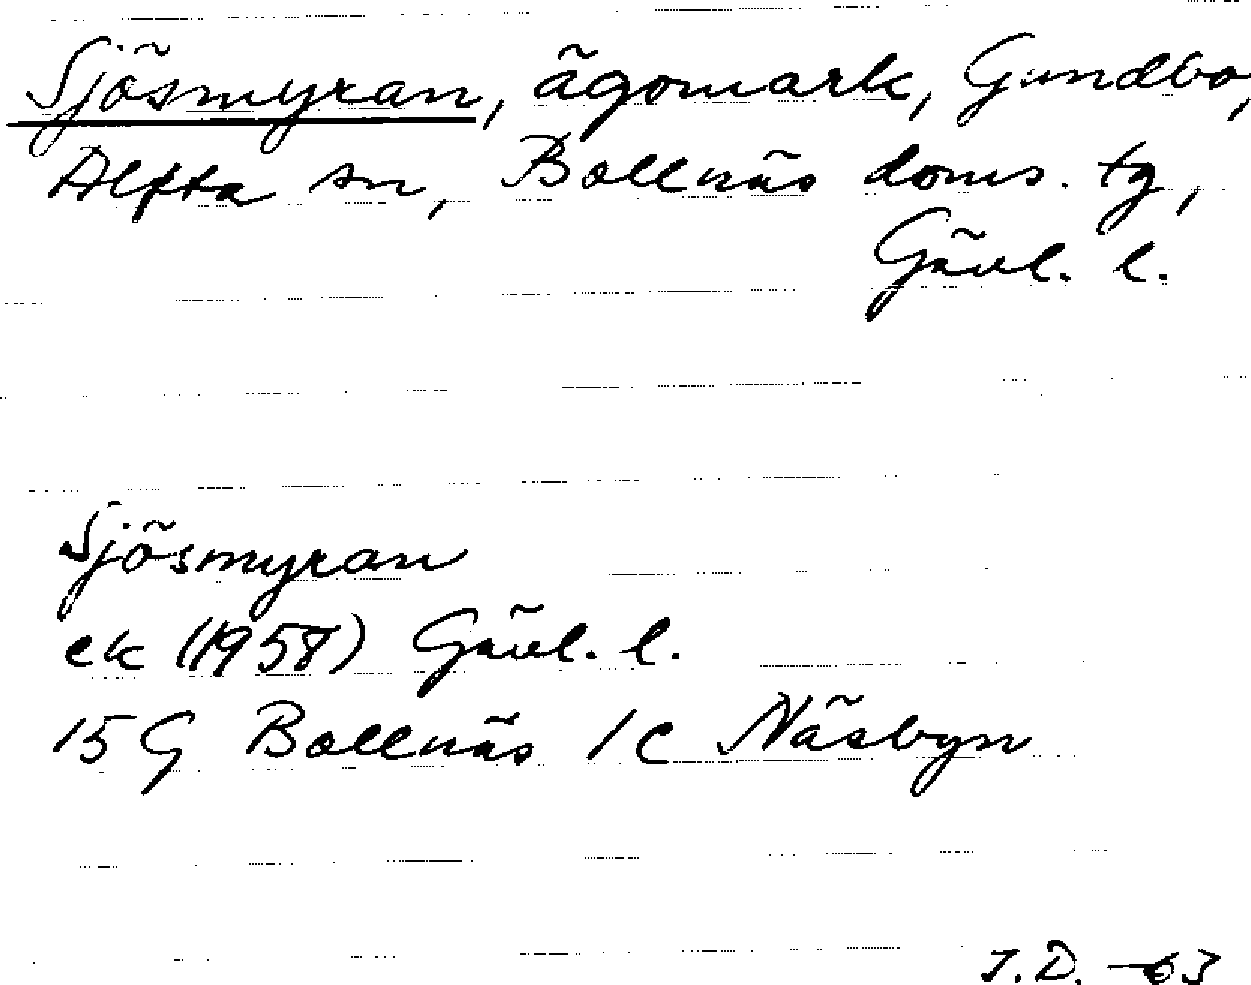 Sjösmyran, ägomark, Gundbo,
Alfta sn, Bollnäs doms. tg,
Gävl. l.
Sjösmyran
ek (1958) Gävl. l.
15 G Bollnäs 1c Näsbyn
I.D. -63